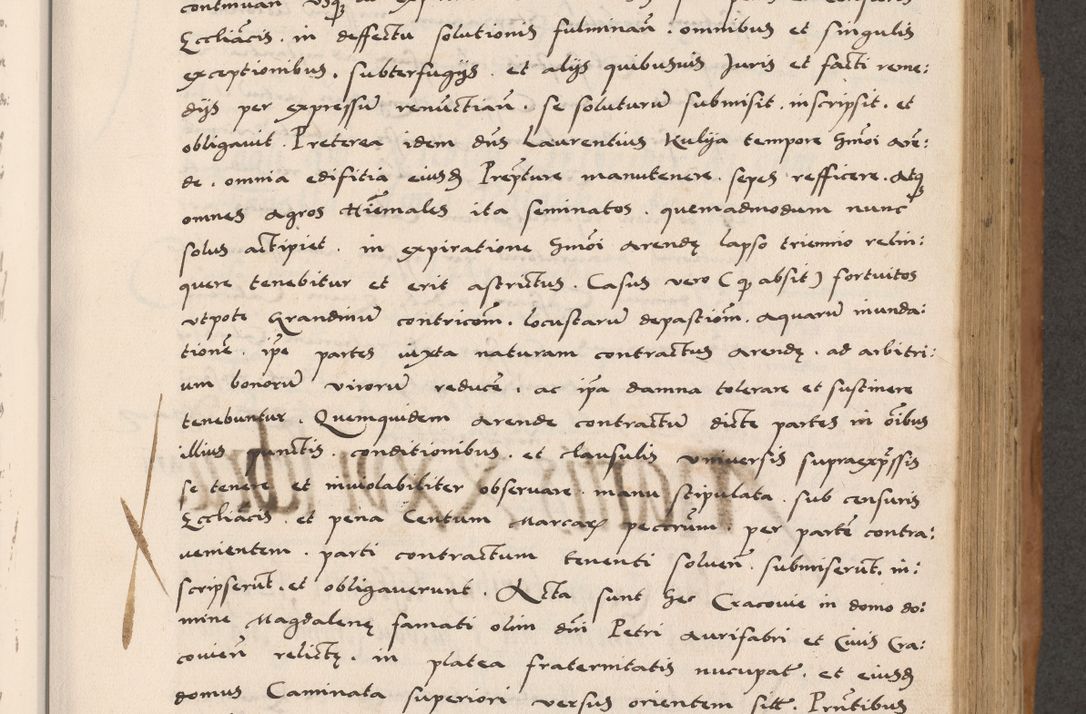 Eccliãcis . in deffectu solutionis fulminañ . omnibus et singulis
exceptionibus . subterfugijs . et alijs quibusuis Juris et facti reme:
dijs per expressũ renũctiañ . se soluturũ submisit . inscripsit . et
obligauit . Preterea idem dñs Laurentius Kulija tempore hmõi arẽ:
de . omnia edifitia eiusd Prepture manutenere . sepes refficere . atq
omnes agros Hiemales ita seminatos . quemadmodum nunc
solus accipiet . in expiratione hmõi arendę lapso triennio relin:
quere tenebitur et erit astrictus . Casus vero ( q absit ) fortuitos
vtpote Grandinũ contricõm . locustarũ depastiõm . aquarũ inunda:
tionẽ . ip̃e partes iuxta naturam contractus arendę . ad arbitri:
um bonorũ virorũ reducẽ . ac ip̃a damna tolerare et sustinere
tenebuntur . Quemquidem arende contractũ dicte partes in oĩbus
illius punctis . conditionibus . et clausulis vniuersis supraexp̃ssis
se tenere et inuiolabiliter obseruare . manu stipulata . sub censuris
Eccliãcis . et pena Centum Marcarꝫ peccũm . per partẽ contra:
uenientem . parti contractum tenenti soluen̄ . submiserũt . in:
scripserũt . et obligauerunt . Acta sunt hec Cracouie in domo do:
mine Magdalenę famati olim dñi Petri Aurifabri et Ciuis Cra:
couien̄ relictę . in platea fraternitatis nucupat . et eiusd
domus Caminata superiori versus orientem sitt . Prñtibus